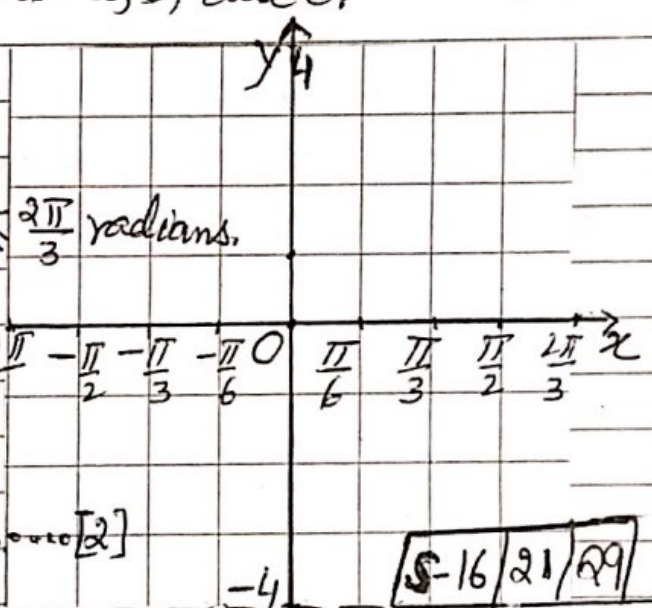 y 4
2π/3 radians.
π -π/2 -π/3 -π/6 0 π/6 π/3 π/2 2π/3 x
[2]
S-16 21 29
-4